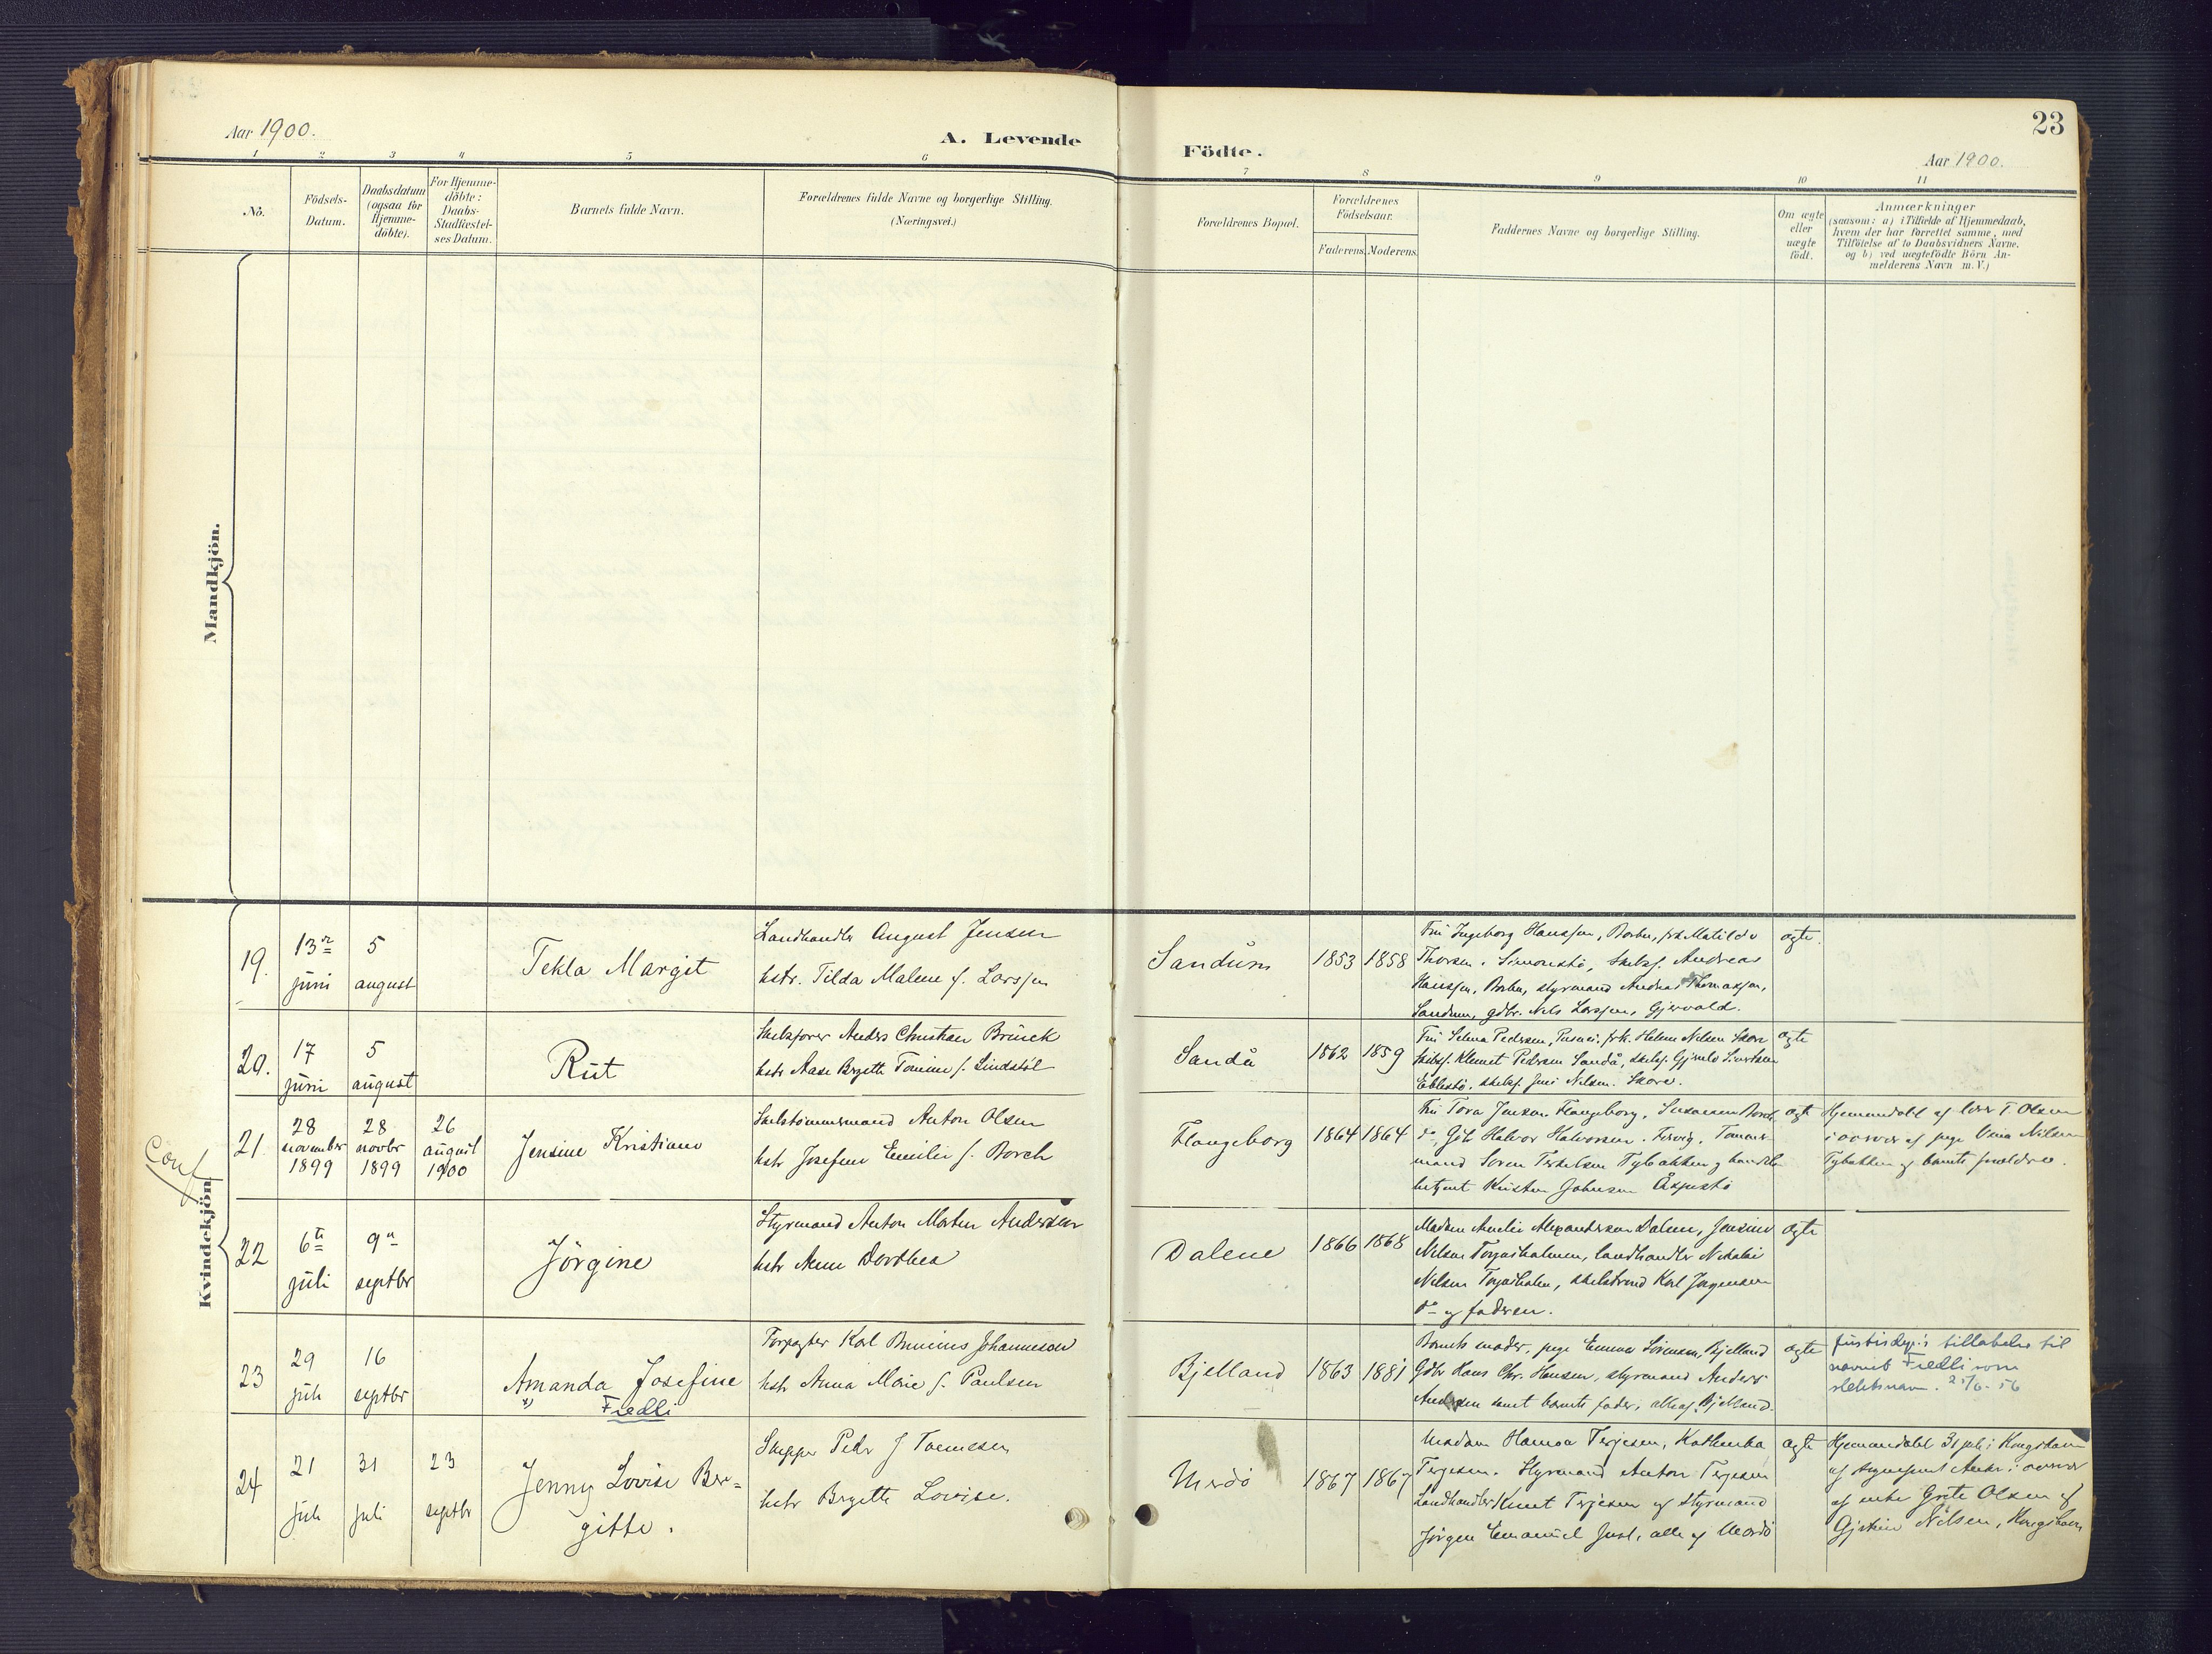 Aar 1900.
A. Levende
1 2 3 4 5 6
No.
Födsels-
Datum.
Daabsdatum
(ogsaa for
Hjemme-
döbte).
For Hjemme-
döbte:
Daabs-
Stadfæstel-
ses Datum.
Barnets fulde Navn.
Forældrenes fulde Navne og borgerlige Stilling.
(Næringsvei.)
Mandkjön.
Conf
Kvindekjön
19.
13de
juni
5
august
Tekla Margit
Landhandler August Jensen
hstr. Tilda Malene f. Larssen
20.
17
juni
5
august
Rut
Skibsfører Anders Christian Brünck
hstr Aase Birgitte Tomine f. Lindstöl
21.
28
november
1899
28
novbr
1899
26
august
1900
Jensine Kristiane
Skibstømmermand Anton Olsen
hstr Josefine Emilie f. Borch
22
6te
juli
9de
septbr
Jörgine
Styrmand Anton Martin Andersen
hstr Anne Dorthea
23
29
juli
16
septbr
Amanda Josefine
x) Fredli
Forpagter Karl Johannesen
hstr Anna Marie f. Paulsen
24
21
juli
31
juli
23
septbr
Jenny Lovise Ber=
gitte.
Skipper Peder J Tönnesen
hstr Birgitte Lovise.
Födte.
23
Aar 1900.
7 8 9 10 11
Forældrenes Bopæl.
Forældrenes
Födselsaar.
Faderens. Moderens.
Faddernes Navne og borgerlige Stilling.
Om ægte
eller
uægte
födt.
Anmærkninger
(saasom: a) i Tilfælde af Hjemmedaab,
hvem der har forrettet samme, med
Tilföielse af to Daabsvidners Navne.
og b) ved uægtefödte Börn An-
melderens Navn m. V.)
Sandum
1853 1858
Fru Ingeborg Hanssen, Barbu, frk Matilde
Thorsen, Simonstö, skibsf. Andreas
Hanssen, Barbu, styrmand Andreas Thomassen,
Sandum, gdbr. Nils Larssen, Gjervold.
ægte.
Sandå
1862 1859
Fru Selma Pedersen, frk. Helene Nilsen Skare
skibsf. Klemet Pedersen Sandå, skibsf. Sivertsen
skibsf. Nilsen. Skare.
ægte
Flangeborg
1864 1864
Fru Tora Jensen Flangeborg, Susanne Borch
do, Gdb Halvor Halvorsen. Tømmer-
mand Søren Terkelsen Tybakken g handels
betjent Kristen Johnsen
ægte
Hjemmedøbt af T. Olsen
i overvær af pige Nilsen
Tybakken og barnets forældre.
Dalene
1866 1868
Madam Amelie Alexandersen Dalene, Jensine
Nilsen Torjusholmen, landhandler Nikolai
Nilsen Torjusholmen, Karl Jørgensen
do og faderen.
ægte
Bjelland
1863 1881
Barnets moder, pige Emma Sörensen, Bjelland
Gdbr Hans Chr. Hansen, styrmand Anders
Andersen samt barnets fader, alle af Bjelland.
ægte
Justisdep.'s tillatelse til
navnet Fredli som
slektsnavn. 21/6. 56
Merdö
1867 1867
Madam Hanna Terjesen, Kathinka
Terjesen. Styrmand Anton Terjesen
Landhandler Knut Terjesen og styrmand
Jörgen Emanuel Just, alle af Merdö
ægte
Hjemmedøbt 31 juli i Kongshavn
af i overvær
af enke Grete Olsen af
Nilsen, Kongshavn